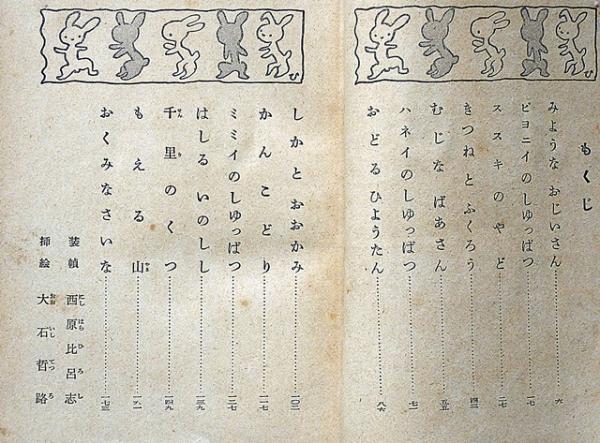 もくじ
みような おじいさん 六
ピヨニイのしゆっぱつ 一七
ススキのやど 二七
きつねとふくろう 四三
むじなばあさん 五五
ハネイのしゆっぱつ 七一
おどるひようたん 八六
しかとおおかみ 一〇二
かんこどり 一一七
ミミイのしゆっぱつ 一二七
はしるいのしし 一三九
千里のくつ 一四九
もえる山 一六一
おくみなさいな 一七三
装幀 西原比呂志
挿絵 大石哲路